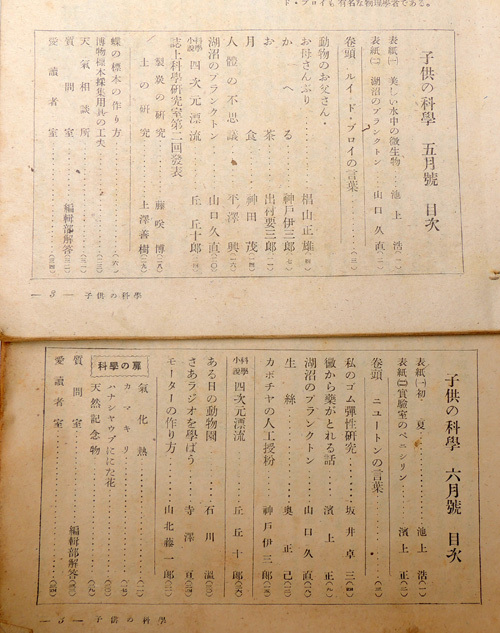 ド・ブロイも有名な物理學者である。
子供の科學 五月號 目次
表紙(一) 美しい水中の微生物…池上 浩(一)
表紙(二) 湖沼のプランクトン…山口久直(二)
卷頭…ルイ・ド・ブロイの言葉…(三)
動物のお父さん・
お母さんぶり…椙山正雄(四)
かへる…神戸伊三郎(七)
お茶…出村要三郎
月食…神田 茂
人體の不思議…平澤 興
湖沼のプランクトン…山口久直
科學小説 四次元漂流…丘 丘十郎
誌上科學研究室第二回發表
製炭の研究…藤咲 博
土の研究…上澤善樹
蝶の標本の作り方…
博物標本採集用具の工夫…
天氣相談所…
質問室…編輯部解答
愛讀者室…
— 3 — 子供の科學
子供の科學 六月號 目次
表紙(一) 初夏…池上 浩(一)
表紙(二) 實驗室のペニシリン…濱上 正(二)
卷頭…ニユートンの言葉…(三)
私のゴム彈性研究…坂井卓三(四)
黴から藥がとれる話…濱上 正
湖沼のプランクトン…山口久直
生絲…奥 正己
カボチヤの人工授粉…神戸伊三郎
科學小説 四次元漂流…丘 丘十郎
ある日の動物園…石川 溫
さあラジオを學ばう…寺澤
モーターの作り方…山北藤一郎
科學の扉
氣化熱…
カマキリ…
ハナシヤウブににた花…
天然記念物…
質問室…編輯部解答
愛讀者室…
— 3 — 子供の科學